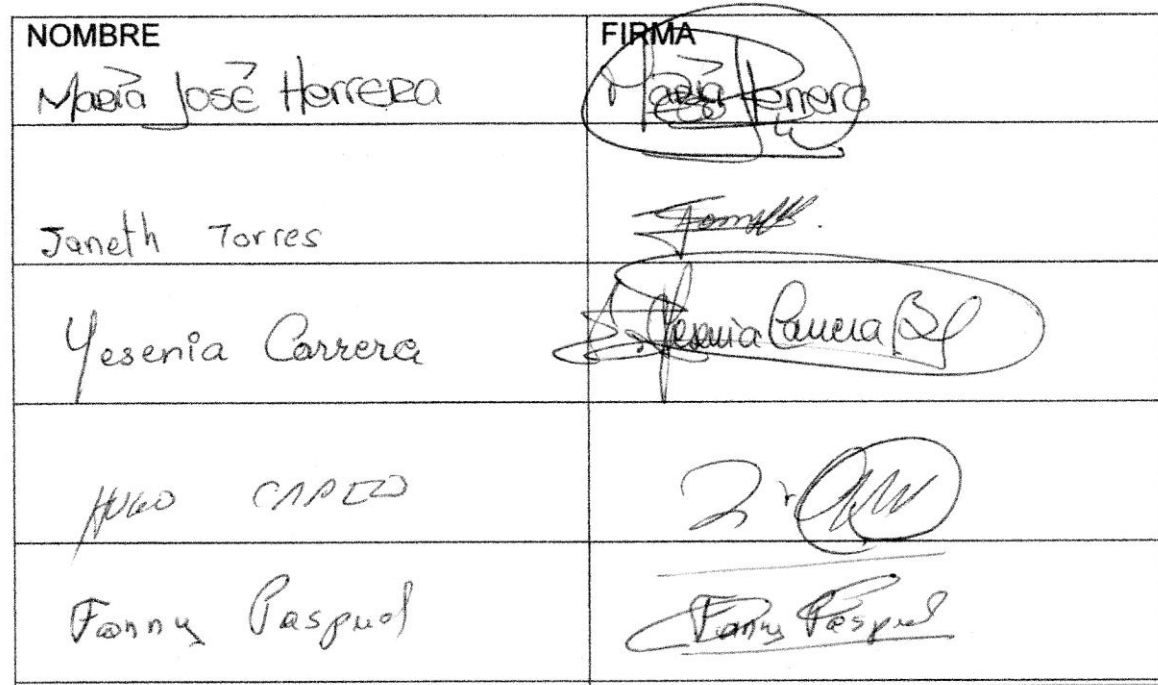 NOMBRE FIRMA
María José Herrera María Herrera
Janeth Torres
Yesenia Carrera Yesenia Carrera
HUGO
Fanny Paspuel Fanny Paspuel